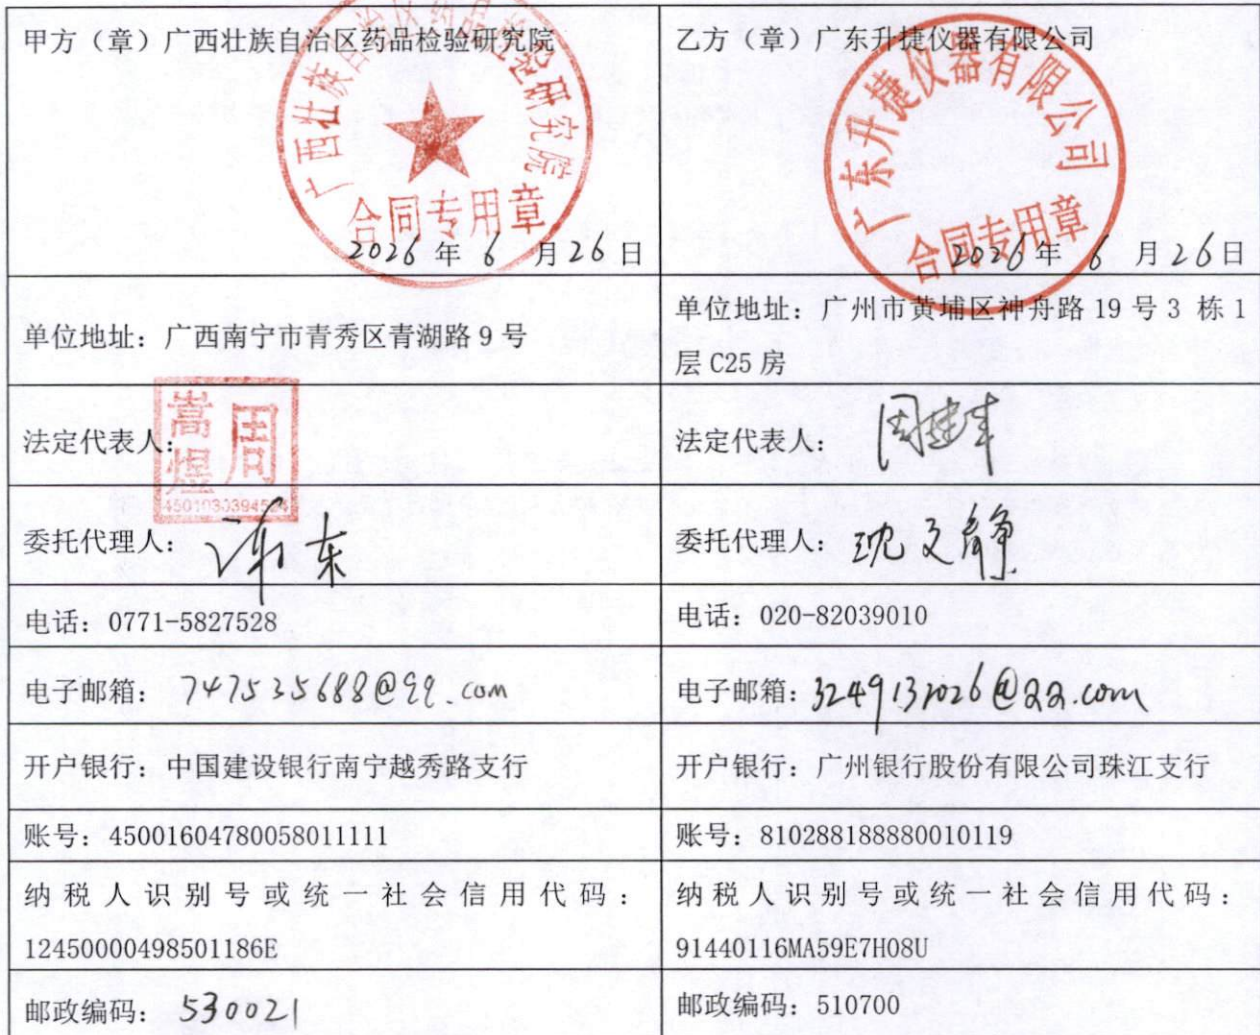 甲方（章）广西壮族自治区药品检验研究院
广西壮族自治区药品检验研究院
合同专用章
2026年6月26日
乙方（章）广东升捷仪器有限公司
广东升捷仪器有限公司
合同专用章
2026年6月26日
单位地址：广西南宁市青秀区青湖路9号
单位地址：广州市黄埔区神舟路19号3 栋1
层C25房
法定代表人：
周嵩煜
法定代表人：周
委托代理人：东
委托代理人：沈文静
电话：0771-5827528
电话：020-82039010
电子邮箱：747535688@qq.com
电子邮箱：3249132026@qq.com
开户银行：中国建设银行南宁越秀路支行
开户银行：广州银行股份有限公司珠江支行
账号：45001604780058011111
账号：810288188880010119
纳税人识别号或统一社会信用代码：
12450000498501186E
纳税人识别号或统一社会信用代码：
91440116MA59E7H08U
邮政编码：530021
邮政编码：510700